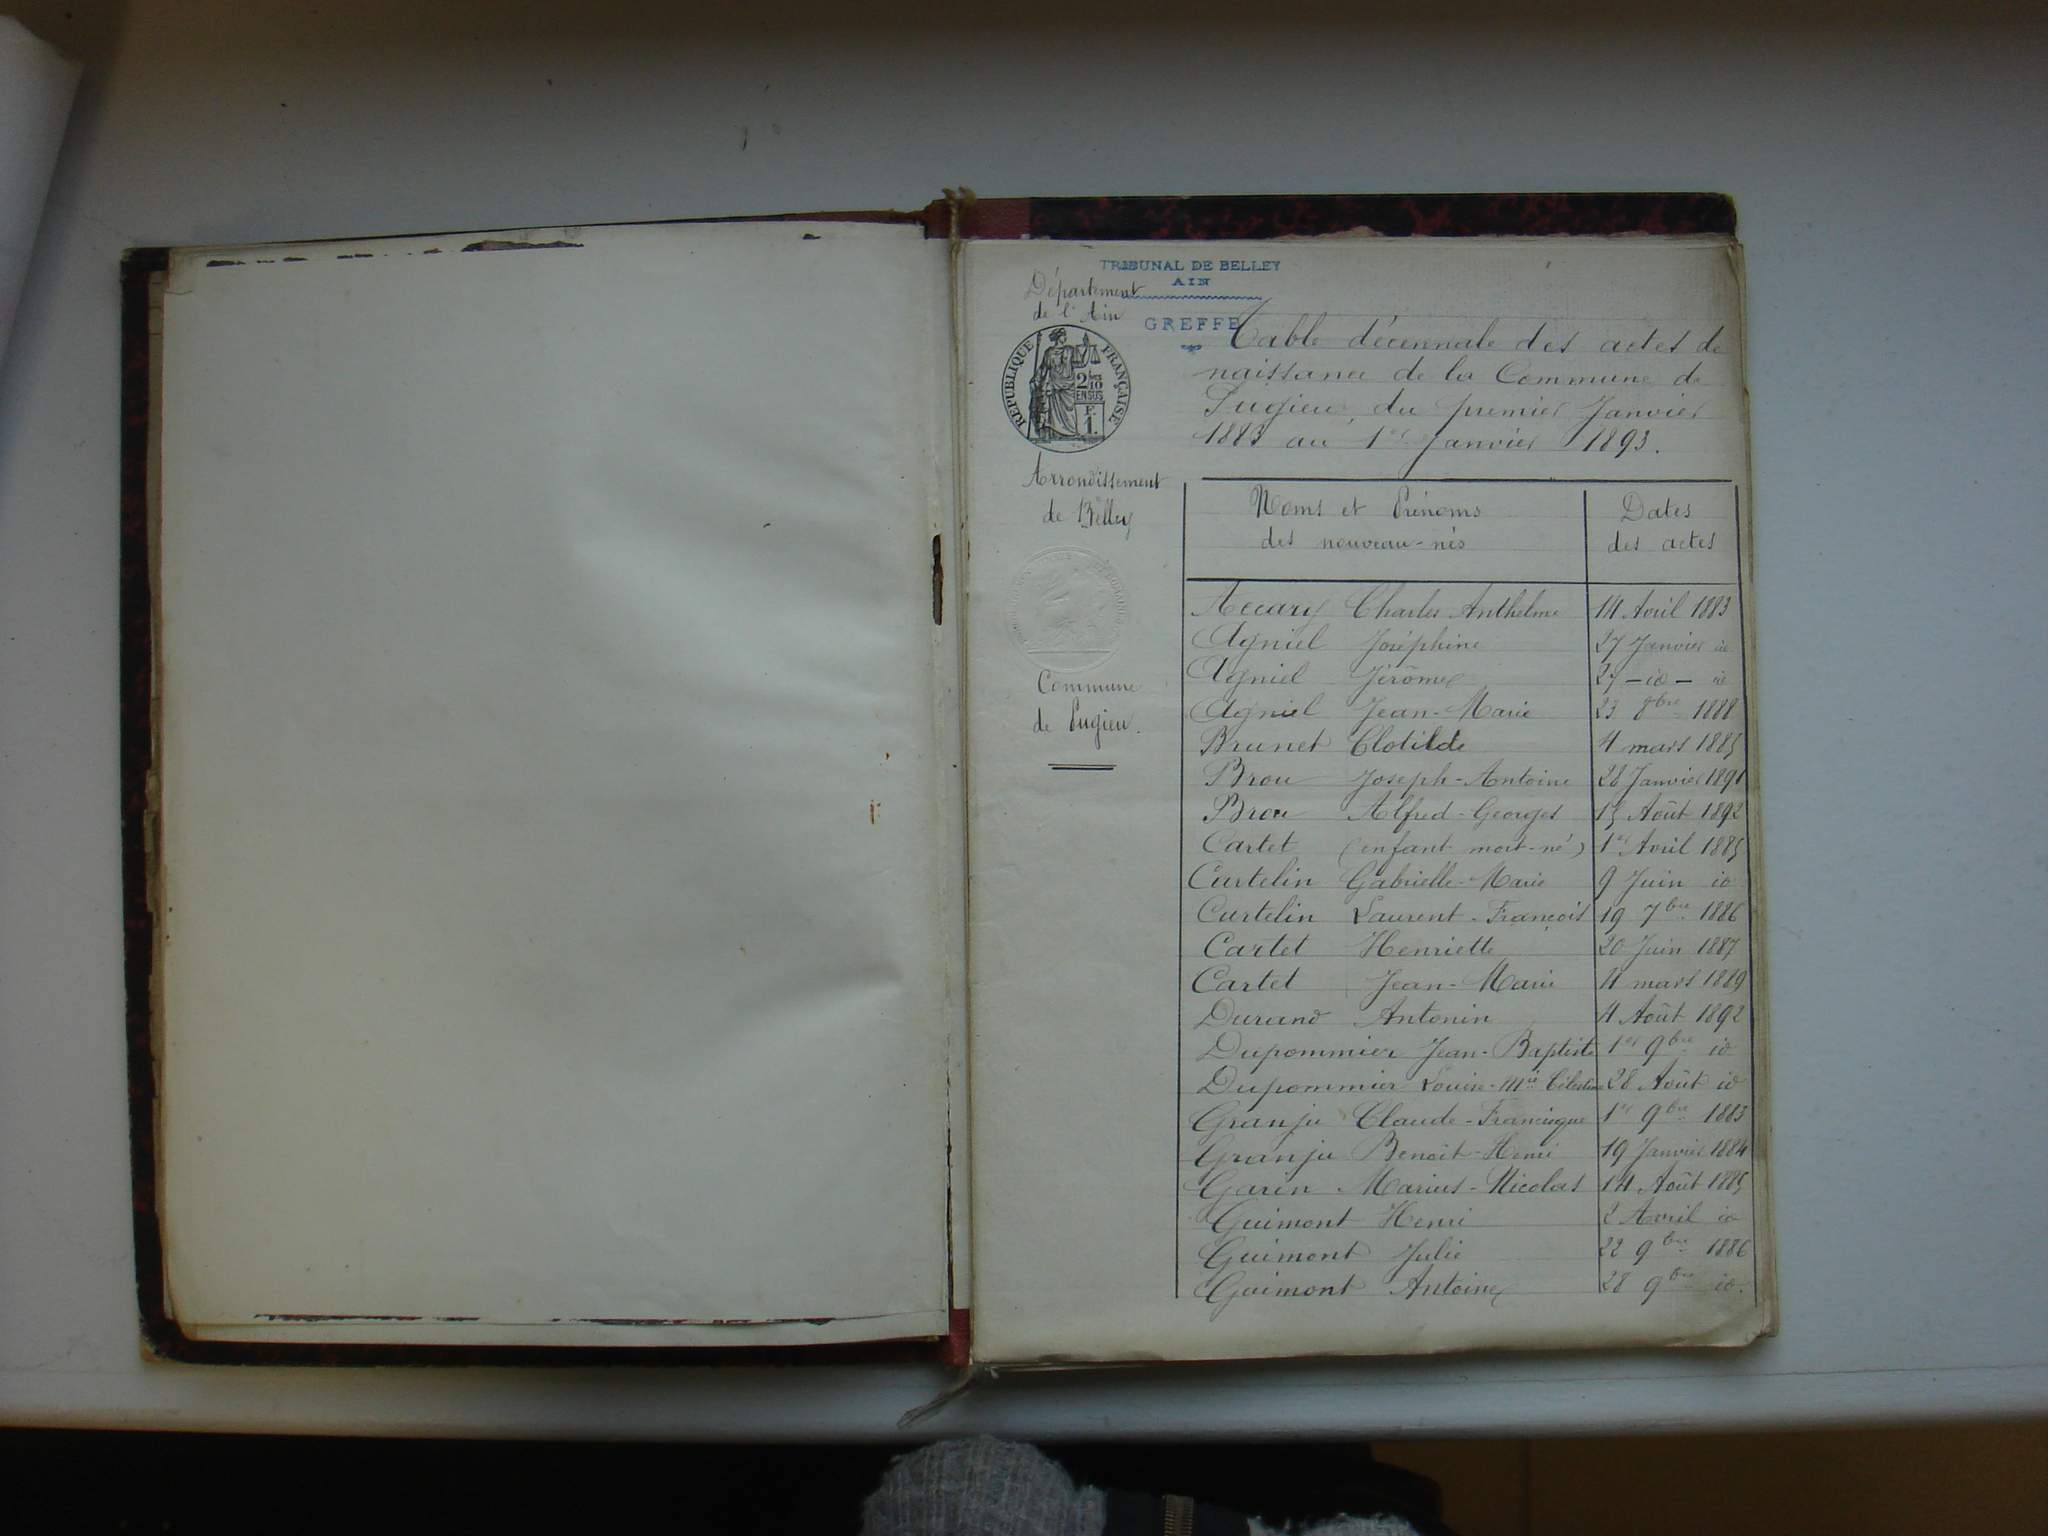 TRIBUNAL DE BELLEY
AIN
GREFFE
Département
de l'Ain
RÉPUBLIQUE FRANÇAISE
2/10
EN SUS
F.
1.
Arrondissement
de Belley
Commune
de Pugieu.
Table décennale des actes de
naissance de la Commune de
Pugieu, du premier Janvier
1883 au 1er Janvier 1893.
Noms et Prénoms
des nouveau-nés
Dates
des actes
Accary Charles Anthelme 14 Avril 1883
Agniel Joséphine 27 Janvier id
Agniel Jérôme 27 - id - id
Agniel Jean-Marie 23 8bre 1888
Brunet Clotilde 4 mars 1885
Brou Joseph-Antoine 28 Janvier 1891
Brou Alfred-Georges 15 Août 1892
Cartet (enfant mort-né) 1er Avril 1885
Curtelin Gabrielle-Marie 9 Juin id
Curtelin Laurent-François 19 7bre 1886
Cartet Henriette 20 Juin 1887
Cartet Jean-Marie 11 mars 1889
Durand Antonin 4 Août 1892
Dupommier Jean-Baptiste 1er 9bre id
Dupommier Louise-Mie Célestine 28 Août id
Granju Claude-Francisque 1er 9bre 1883
Granju Benoit-Henri 19 Janvier 1884
Garin Marius-Nicolas 14 Août 1885
Guimont Henri 2 Avril id
Guimont Julie 22 9bre 1886
Guimont Antoine 28 9bre id.